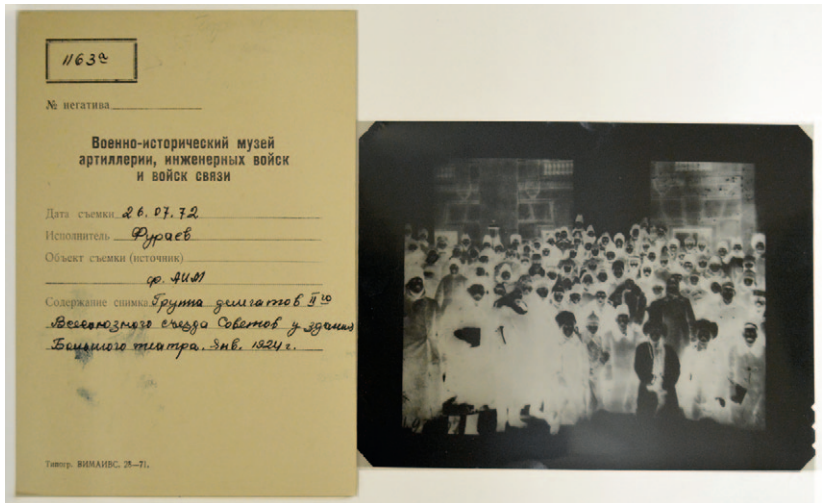 1163а
№ негатива
Военно-исторический музей
артиллерии, инженерных войск
и войск связи
Дата съемки 26.07.72
Исполнитель Фураев
Объект съемки (источник)
ф. АИМ
Содержание снимка Группа делегатов II го
Всесоюзного съезда Советов у здания
Большого театра. Янв. 1924 г.
Типогр. ВИМАИВС. 28—71.